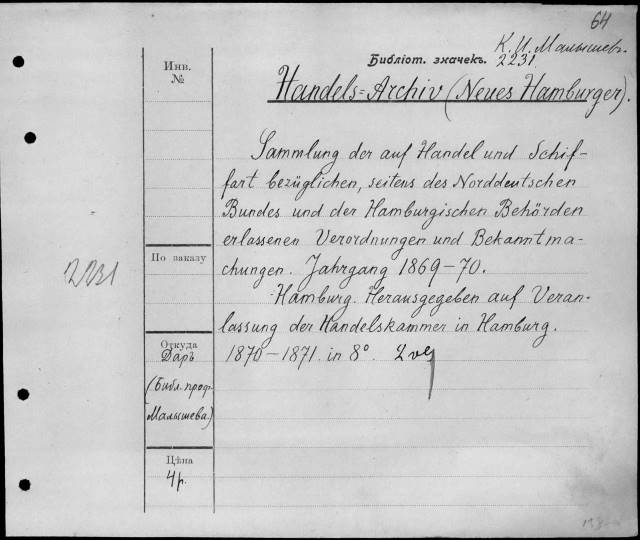 64
К. И. Малышев.
Библіот. значекъ. 2231.
Инв. №
Handels=Archiv (Neues Hamburger).
Sammlung der auf Handel und Schif-
fart bezüglichen, seitens des Norddeutschen
Bundes und der Hamburgischen Behörden
erlassenen Verordnungen und Bekanntma-
chungen. Jahrgang 1869–70.
Hamburg. Herausgegeben auf Veran-
lassung der Handelskammer in Hamburg.
1870–1871. in 8°. 2 vol
2231
По заказу
Откуда
Даръ
(Библ. проф.
Малышева.)
Цѣна
4 р.